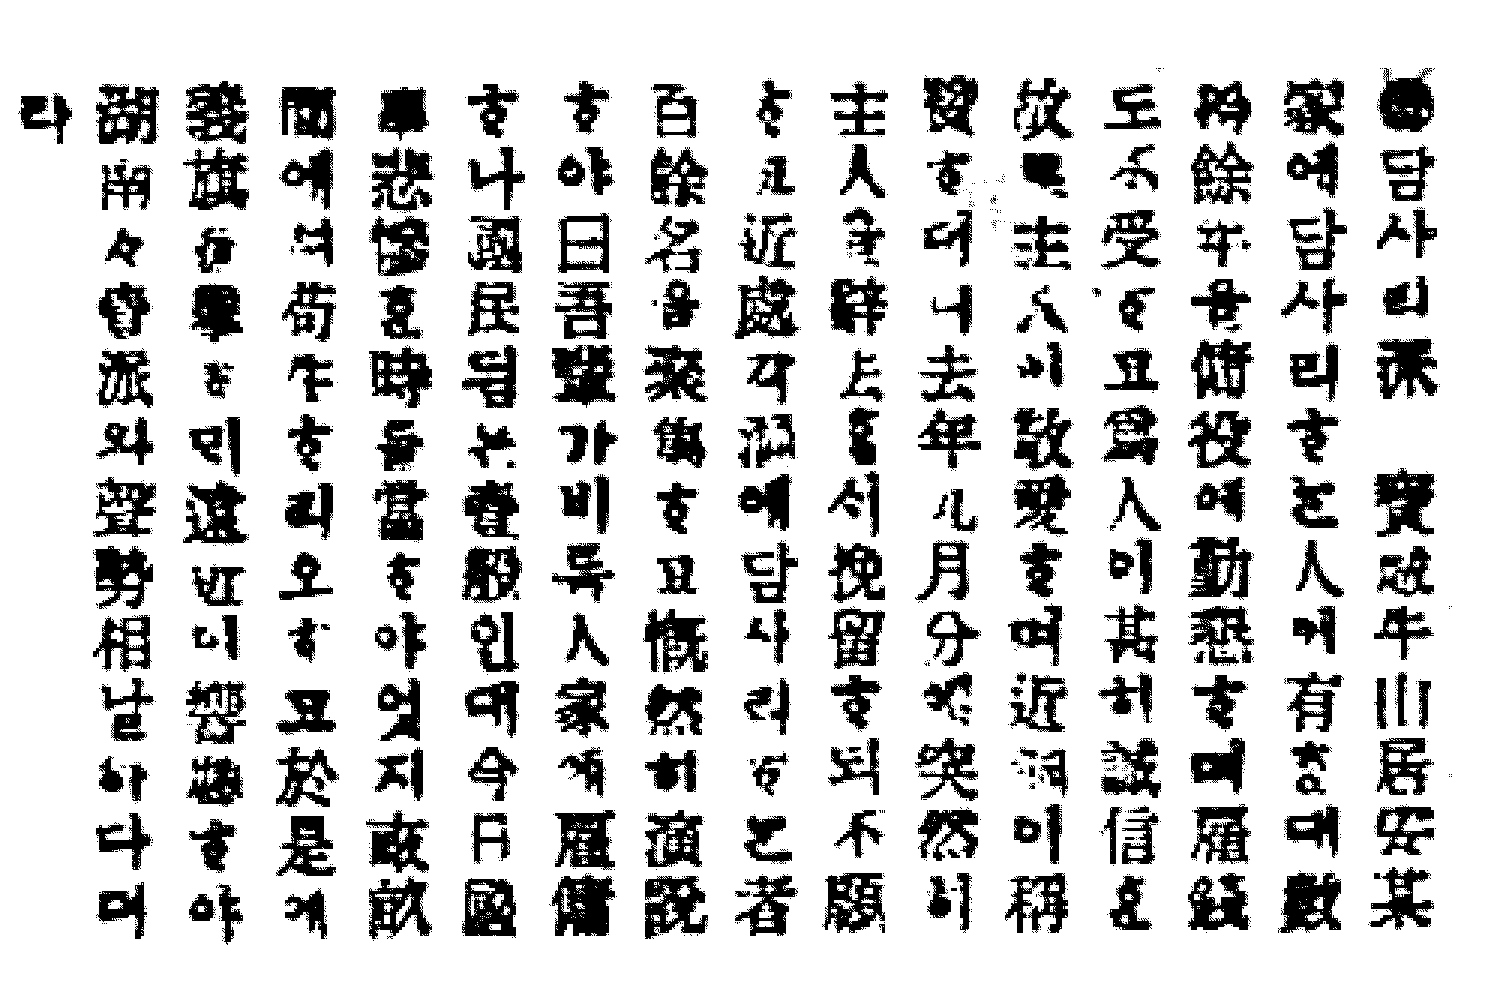 ●담사리派 寶城牛山居安某
家에담사리ᄒᆞᄂᆞᆫ人이有ᄒᆞᆫ대數
餘年을傭役ᄒᆞ여勤懇ᄒᆞ며雇錢
도不受ᄒᆞ고爲人이甚히誠信ᄒᆞᆫ
故로主人이敬愛ᄒᆞ여近洞이稱
賢ᄒᆞ더니去年九月分에突然히
主人을辭去ᄒᆞᆯ시挽留ᄒᆞ되不顧
ᄒᆞ고近處各洞에담사리ᄒᆞᄂᆞᆫ者
百餘名을聚集ᄒᆞ고慨然히演說
ᄒᆞ야曰吾輩가비록人家에雇傭
ᄒᆞ나國民됨은一般인대今日國
事悲ᄒᆞᆫ時를當ᄒᆞ야엇지畎畝
間에셔苟生ᄒᆞ리오ᄒᆞ고於是에
義旗를擧ᄒᆞ미遠近이響應ᄒᆞ야
湖南派와聲勢相하다더
라